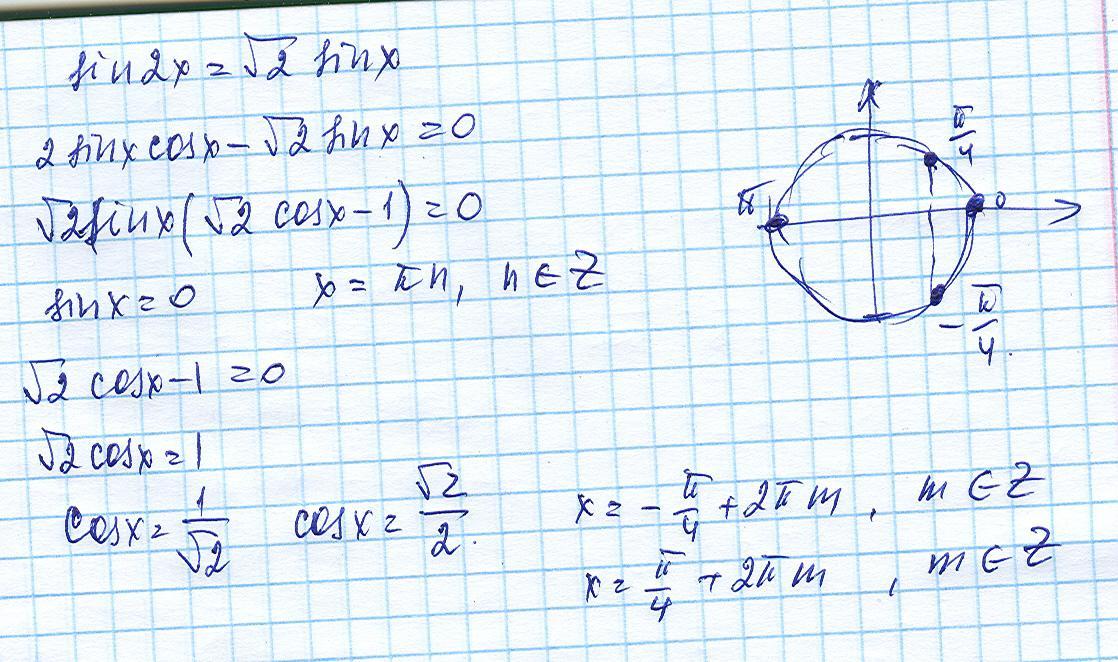 sin2x = √2 sinx
2 sinx cosx - √2 sinx = 0
√2 sinx (√2 cosx - 1) = 0
sinx = 0 x = πn, n ∈ Z
√2 cosx - 1 = 0
√2 cosx = 1
cosx = 1/√2 cosx = √2/2. x = - π/4 + 2πm, m ∈ Z
x = π/4 + 2πm, m ∈ Z
π/4
π
0
- π/4.